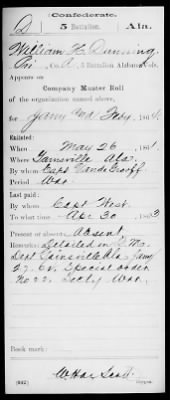 Confederate.
D 5 Battalion. Ala.
William H. Dunning
Pri, Co. A, 5 Battalion Alabama Vols.
Appears on
Company Muster Roll
of the organization named above,
for Jany and Feby, 1864.
Enlisted:
When May 26, 1861.
Where Gainsville Ala.
By whom Capt Vande Graff
Period War.
Last paid:
By whom Capt West.
To what time Apr 30, 1863
Present or absent Absent.
Remarks: Detailed in Q. Mr.
Dept Gainsville Ala Jany
27. 62. Special order
No 22. Secty War.
Book mark:
(642) Copyist.